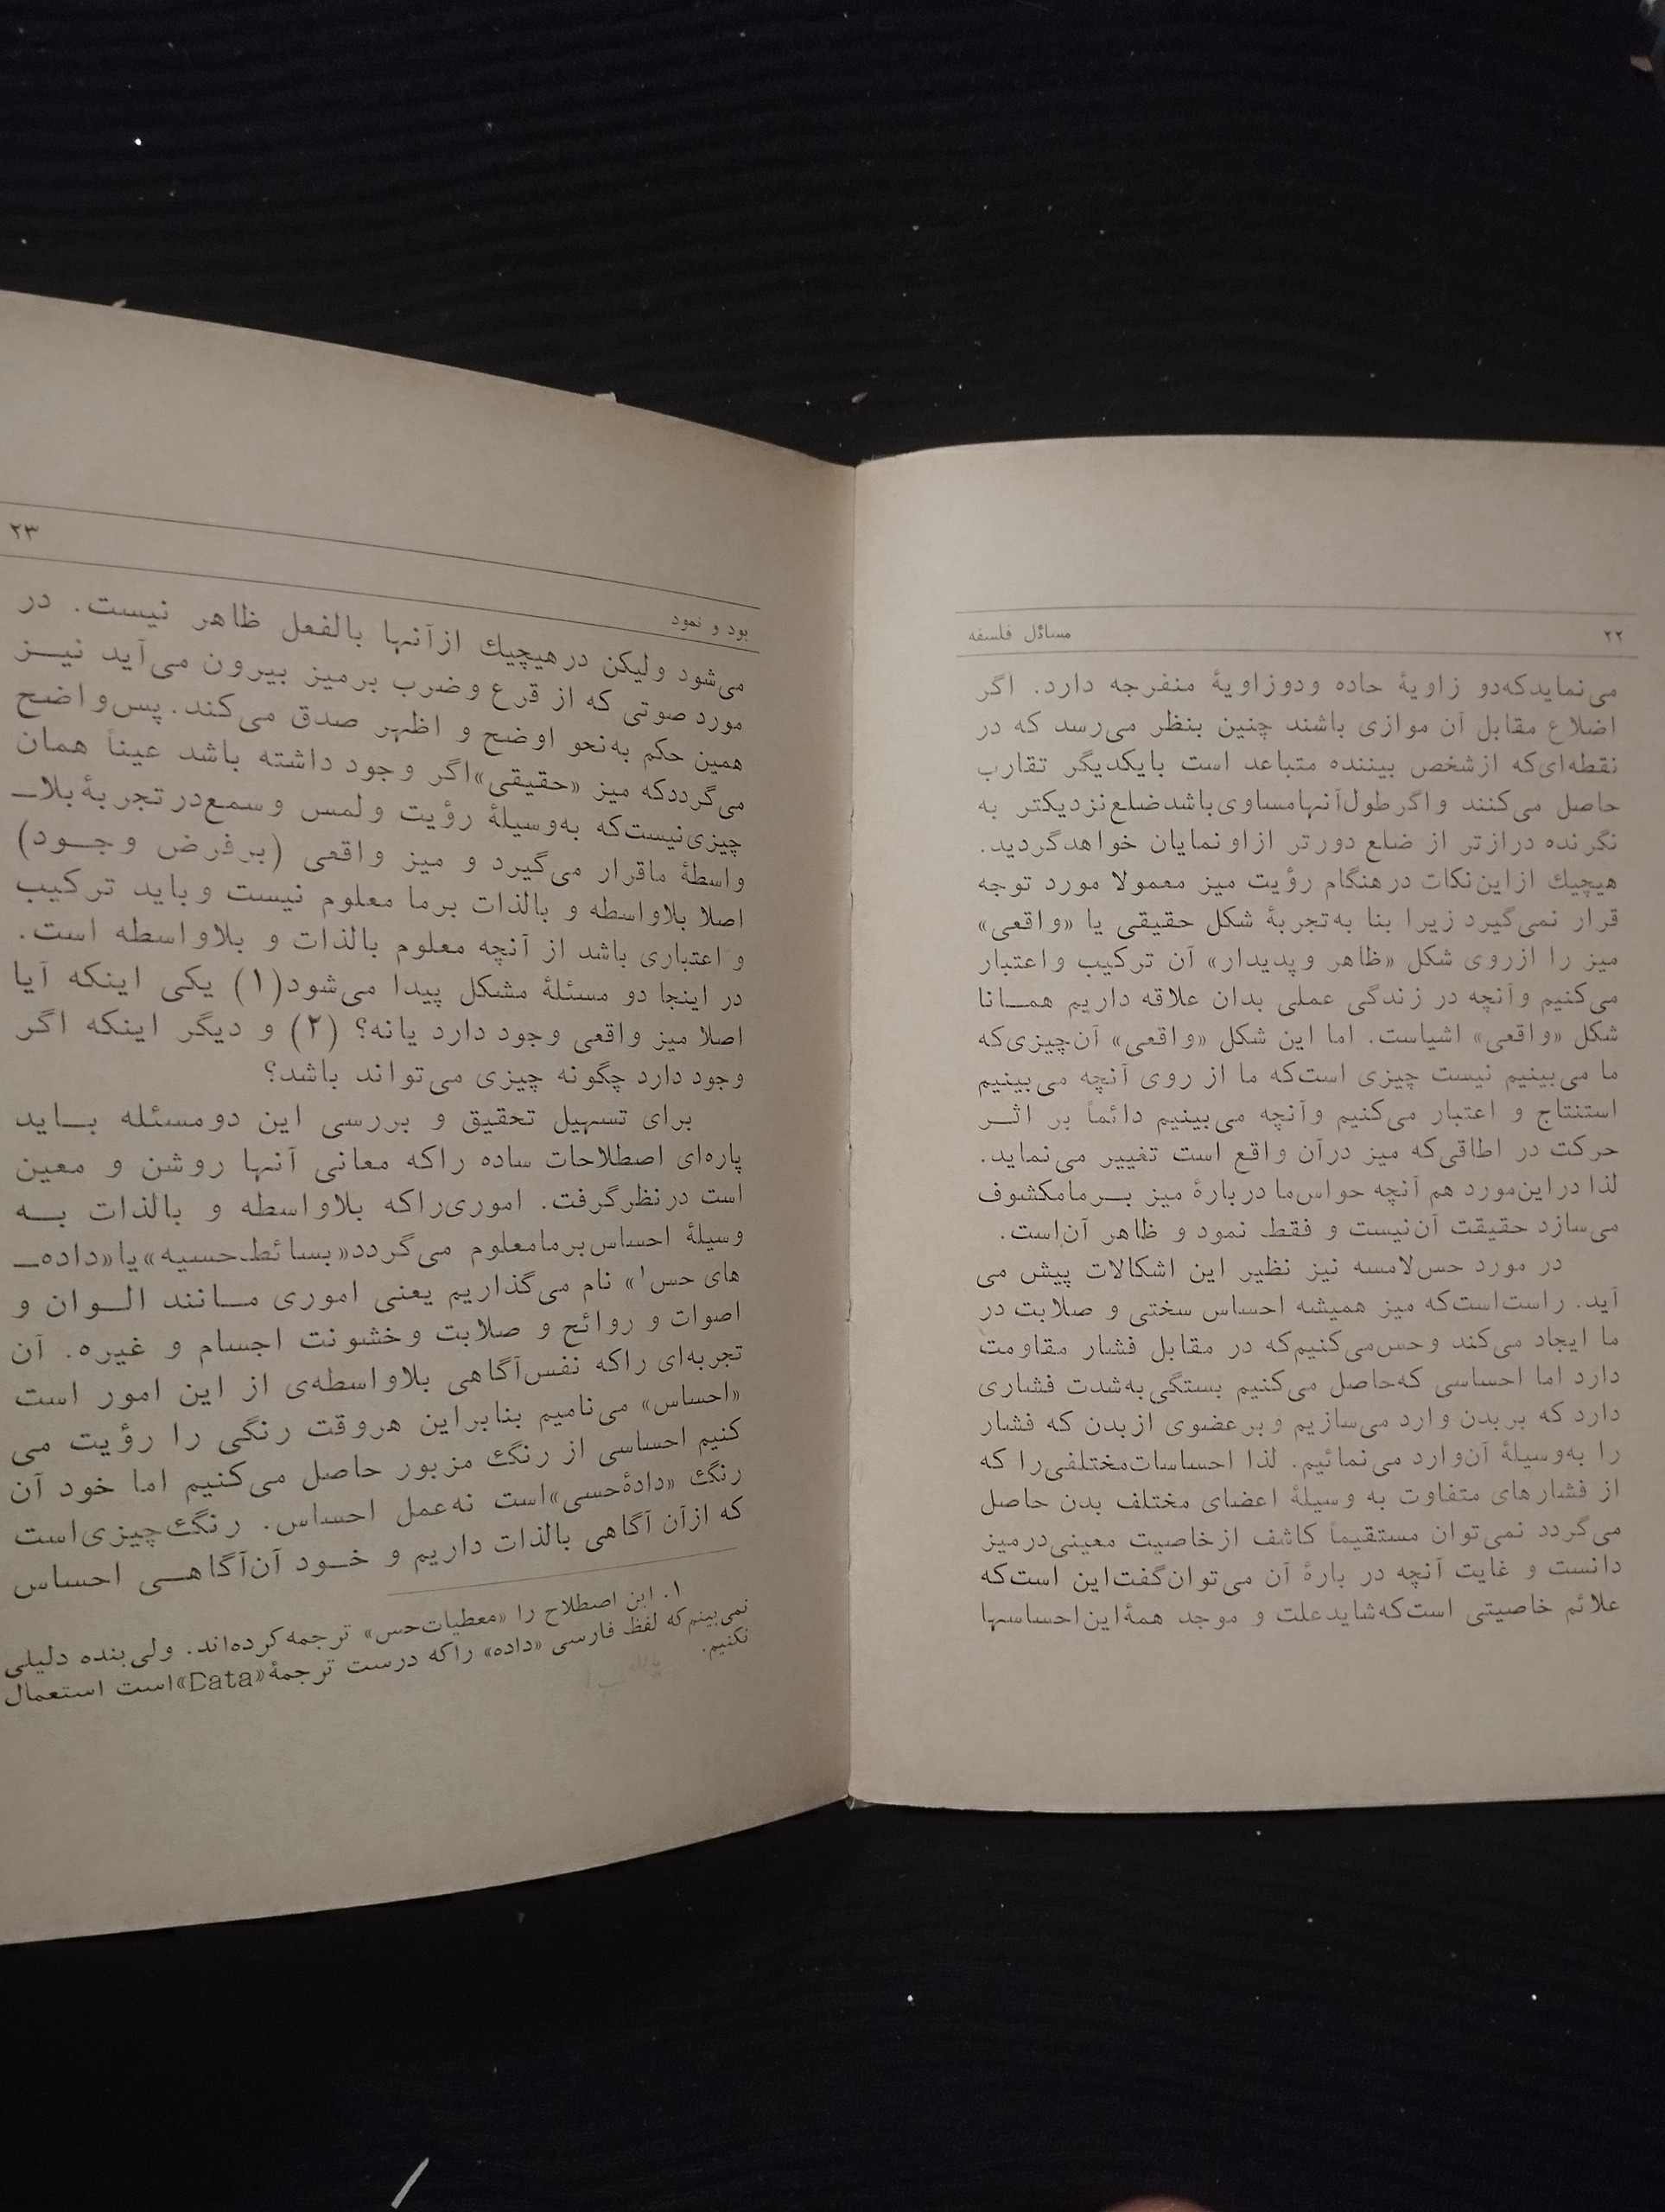 ۲۲
مسائل فلسفه
می‌نماید که دو زاویهٔ حاده و دو زاویهٔ منفرجه دارد. اگر
اضلاع مقابل آن موازی باشند چنین بنظر می‌رسد که در
نقطه‌ای که از شخص بیننده متباعد است بایکدیگر تقارب
حاصل می‌کنند و اگر طول آنها مساوی باشد ضلع نزدیکتر به
نگرنده درازتر از ضلع دورتر از او نمایان خواهد گردید.
هیچیك از این نکات در هنگام رؤیت میز معمولا مورد توجه
قرار نمی‌گیرد زیرا بنا به تجربهٔ شکل حقیقی یا «واقعی»
میز را از روی شکل «ظاهر و پدیدار» آن ترکیب و اعتبار
می‌کنیم و آنچه در زندگی عملی بدان علاقه داریم همانا
شکل «واقعی» اشیاست. اما این شکل «واقعی» آن چیزی که
ما می‌بینیم نیست چیزی است که ما از روی آنچه می‌بینیم
استنتاج و اعتبار می‌کنیم و آنچه می‌بینیم دائماً بر اثر
حرکت در اطاقی که میز در آن واقع است تغییر می‌نماید.
لذا در این مورد هم آنچه حواس ما در بارهٔ میز بر ما مکشوف
می‌سازد حقیقت آن نیست و فقط نمود و ظاهر آن است.
در مورد حس لامسه نیز نظیر این اشکالات پیش می
آید. راست است که میز همیشه احساس سختی و صلابت در
ما ایجاد می‌کند و حس می‌کنیم که در مقابل فشار مقاومت
دارد اما احساسی که حاصل می‌کنیم بستگی به شدت فشاری
دارد که بر بدن وارد می‌سازیم و بر عضوی از بدن که فشار
را به وسیلهٔ آن وارد می‌نمائیم. لذا احساسات مختلفی را که
از فشارهای متفاوت به وسیلهٔ اعضای مختلف بدن حاصل
می‌گردد نمی‌توان مستقیماً کاشف از خاصیت معینی در میز
دانست و غایت آنچه در بارهٔ آن می‌توان گفت این است که
علائم خاصیتی است که شاید علت و موجد همهٔ این احساسها
بود و نمود
۲۳
می‌شود ولیکن در هیچیك از آنها بالفعل ظاهر نیست. در
مورد صوتی که از قرع و ضرب بر میز بیرون می‌آید نیز
همین حکم به نحو اوضح و اظهر صدق می‌کند. پس واضح
می‌گردد که میز «حقیقی» اگر وجود داشته باشد عیناً همان
چیزی نیست که به وسیلهٔ رؤیت و لمس و سمع در تجربهٔ بلا-
واسطهٔ ما قرار می‌گیرد و میز واقعی (بر فرض وجود)
اصلا بلاواسطه و بالذات بر ما معلوم نیست و باید ترکیب
و اعتباری باشد از آنچه معلوم بالذات و بلاواسطه است.
در اینجا دو مسئلهٔ مشکل پیدا می‌شود (۱) یکی اینکه آیا
اصلا میز واقعی وجود دارد یا نه؟ (۲) و دیگر اینکه اگر
وجود دارد چگونه چیزی می‌تواند باشد؟
برای تسهیل تحقیق و بررسی این دو مسئله باید
پاره‌ای اصطلاحات ساده را که معانی آنها روشن و معین
است در نظر گرفت. اموری را که بلاواسطه و بالذات به
وسیلهٔ احساس بر ما معلوم می‌گردد «بسائط حسیه» یا «داده-
های حس۱» نام می‌گذاریم یعنی اموری مانند الوان و
اصوات و روائح و صلابت و خشونت اجسام و غیره. آن
تجربه‌ای را که نفس آگاهی بلاواسطه‌ی از این امور است
«احساس» می‌نامیم بنابراین هر وقت رنگی را رؤیت می
کنیم احساسی از رنگ مزبور حاصل می‌کنیم اما خود آن
رنگ «دادهٔ حسی» است نه عمل احساس. رنگ چیزی است
که از آن آگاهی بالذات داریم و خود آن آگاهی احساس
۱. این اصطلاح را «معطیات حس» ترجمه کرده‌اند. ولی بنده دلیلی
نمی‌بینم که لفظ فارسی «داده» را که درست ترجمهٔ «Data» است استعمال
نکنیم.